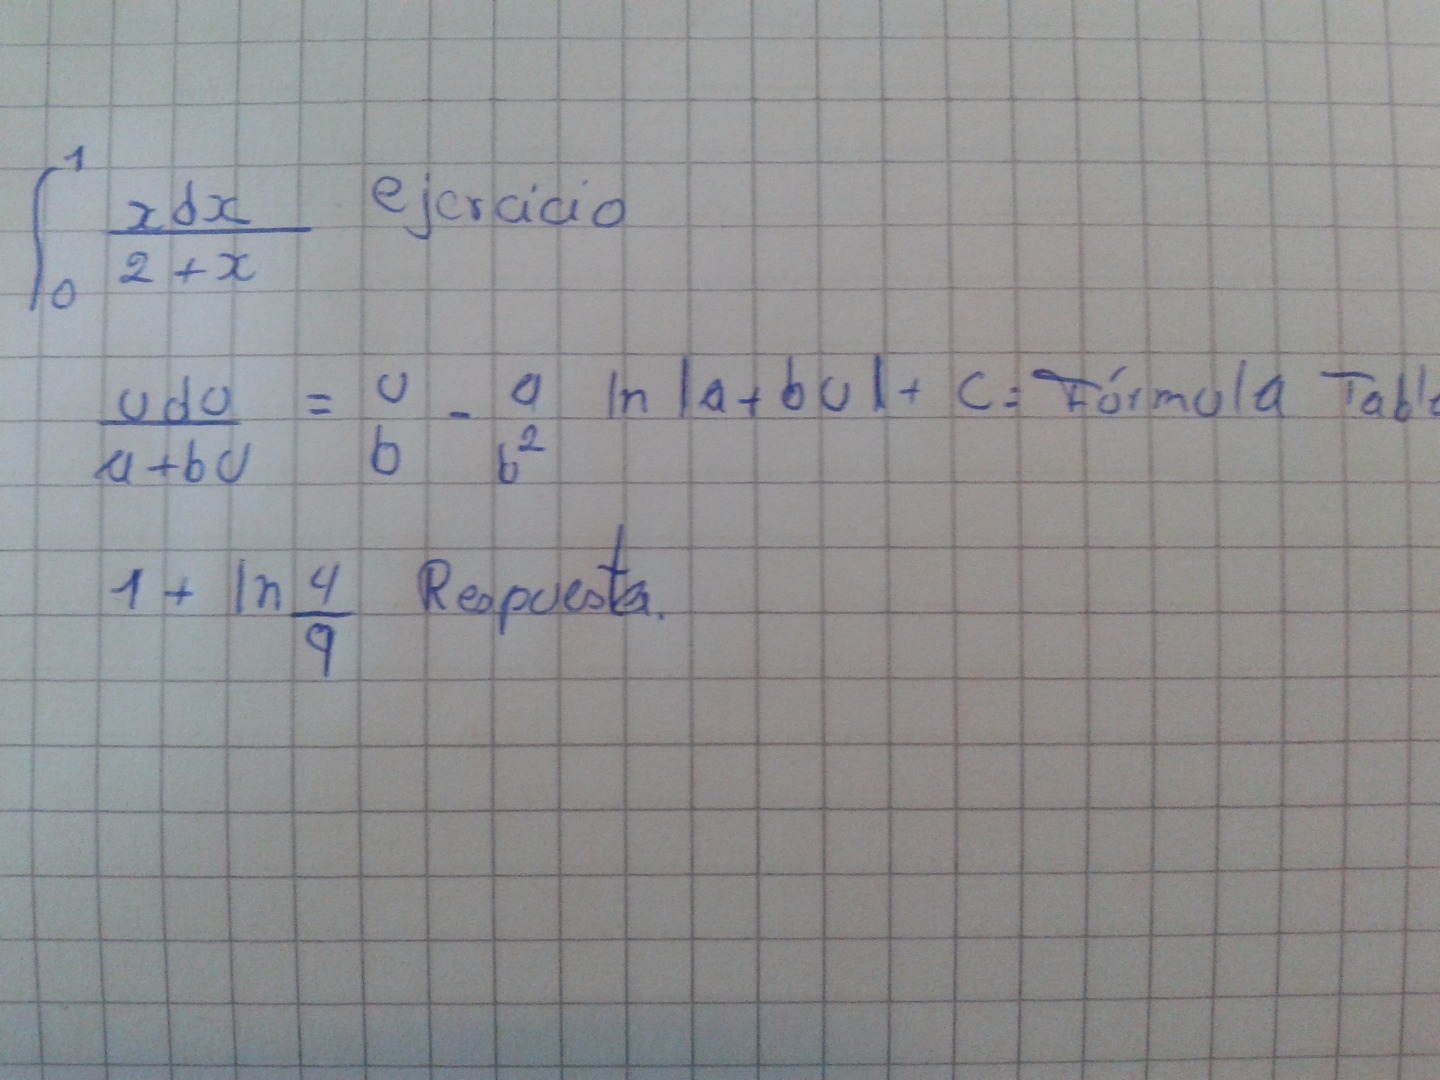 ∫₀¹ x dx / 2 + x ejercicio
u du / a + bu = u / b - a / b² ln |a + bu| + C = Fórmula
1 + ln 4/9 Respuesta.